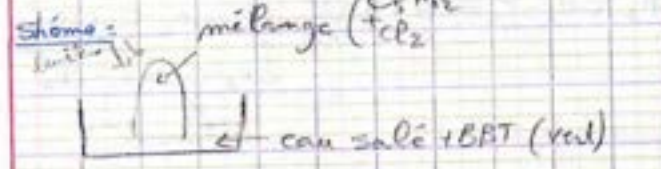 shéma:
mélange (
+Cl2
eau salé + BBT (vert)